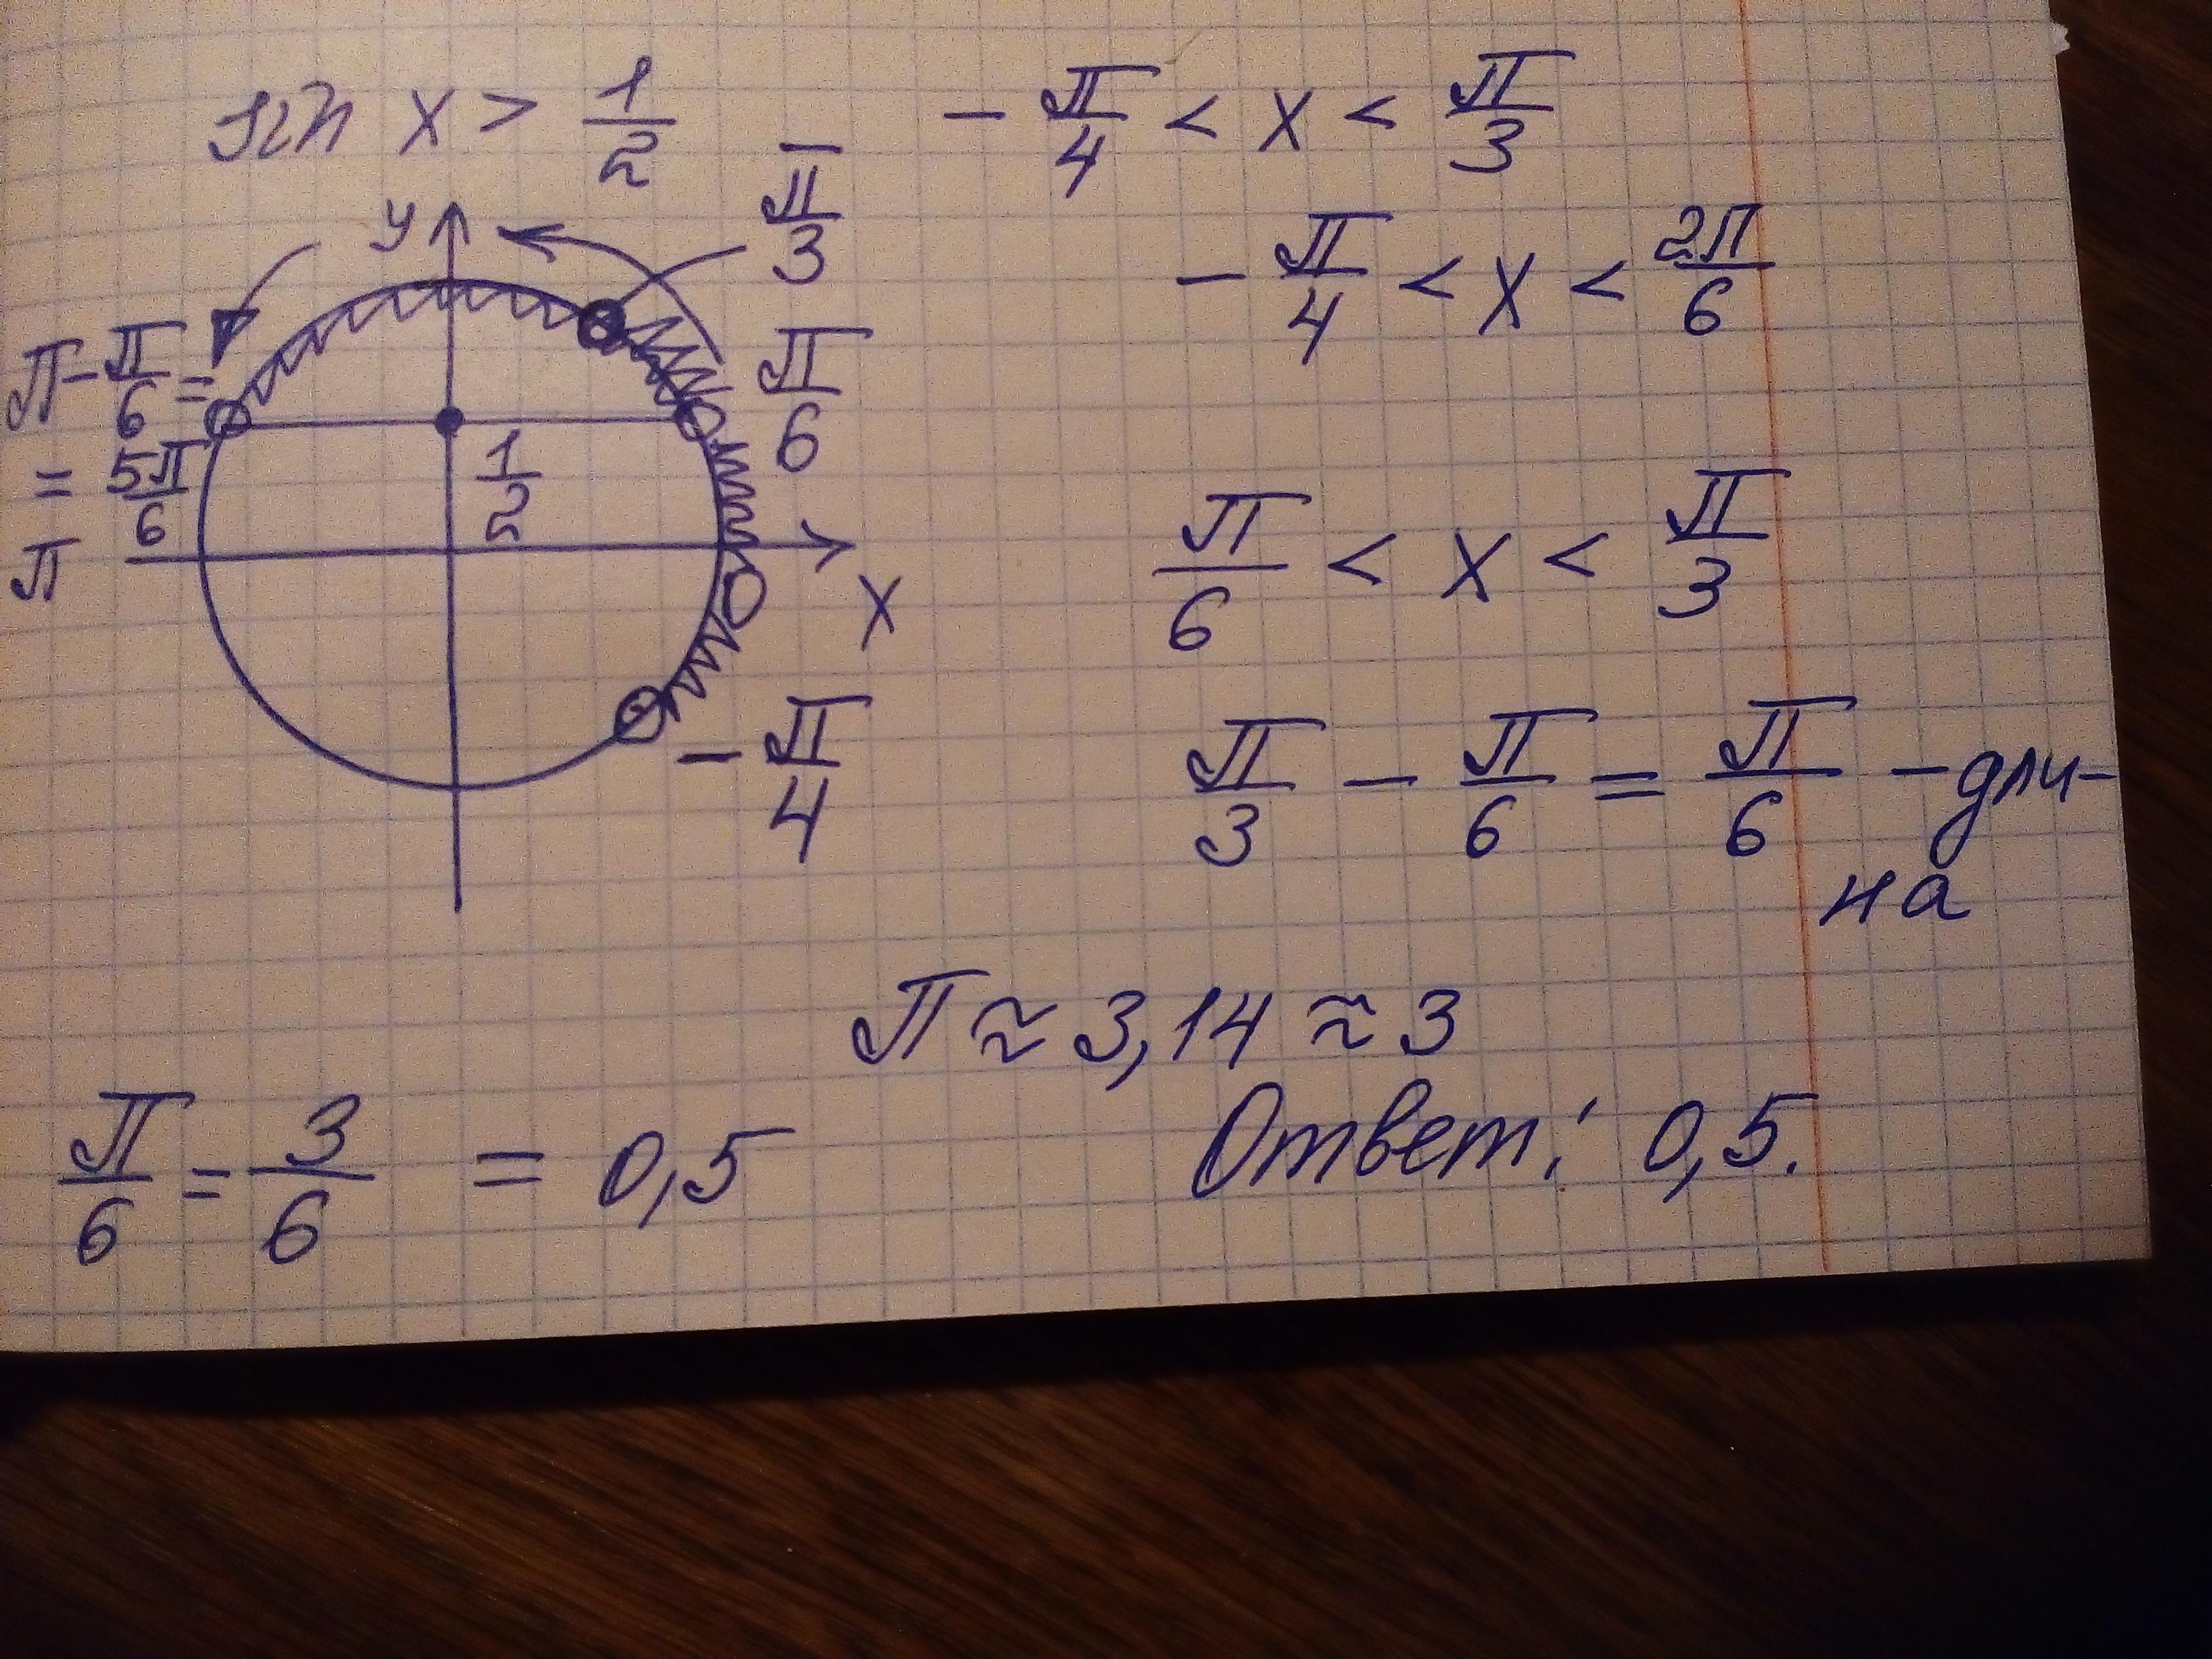 sin x > 1/2
- π/4 < x < π/3
- π/4 < x < 2π/6
y
π/3
π - π/6 =
= 5π/6
π/6
1/2
π
x
- π/4
π/6 < x < π/3
π/3 - π/6 = π/6 - дли-
на
π ≈ 3,14 ≈ 3
π/6 = 3/6 = 0,5
Ответ: 0,5.